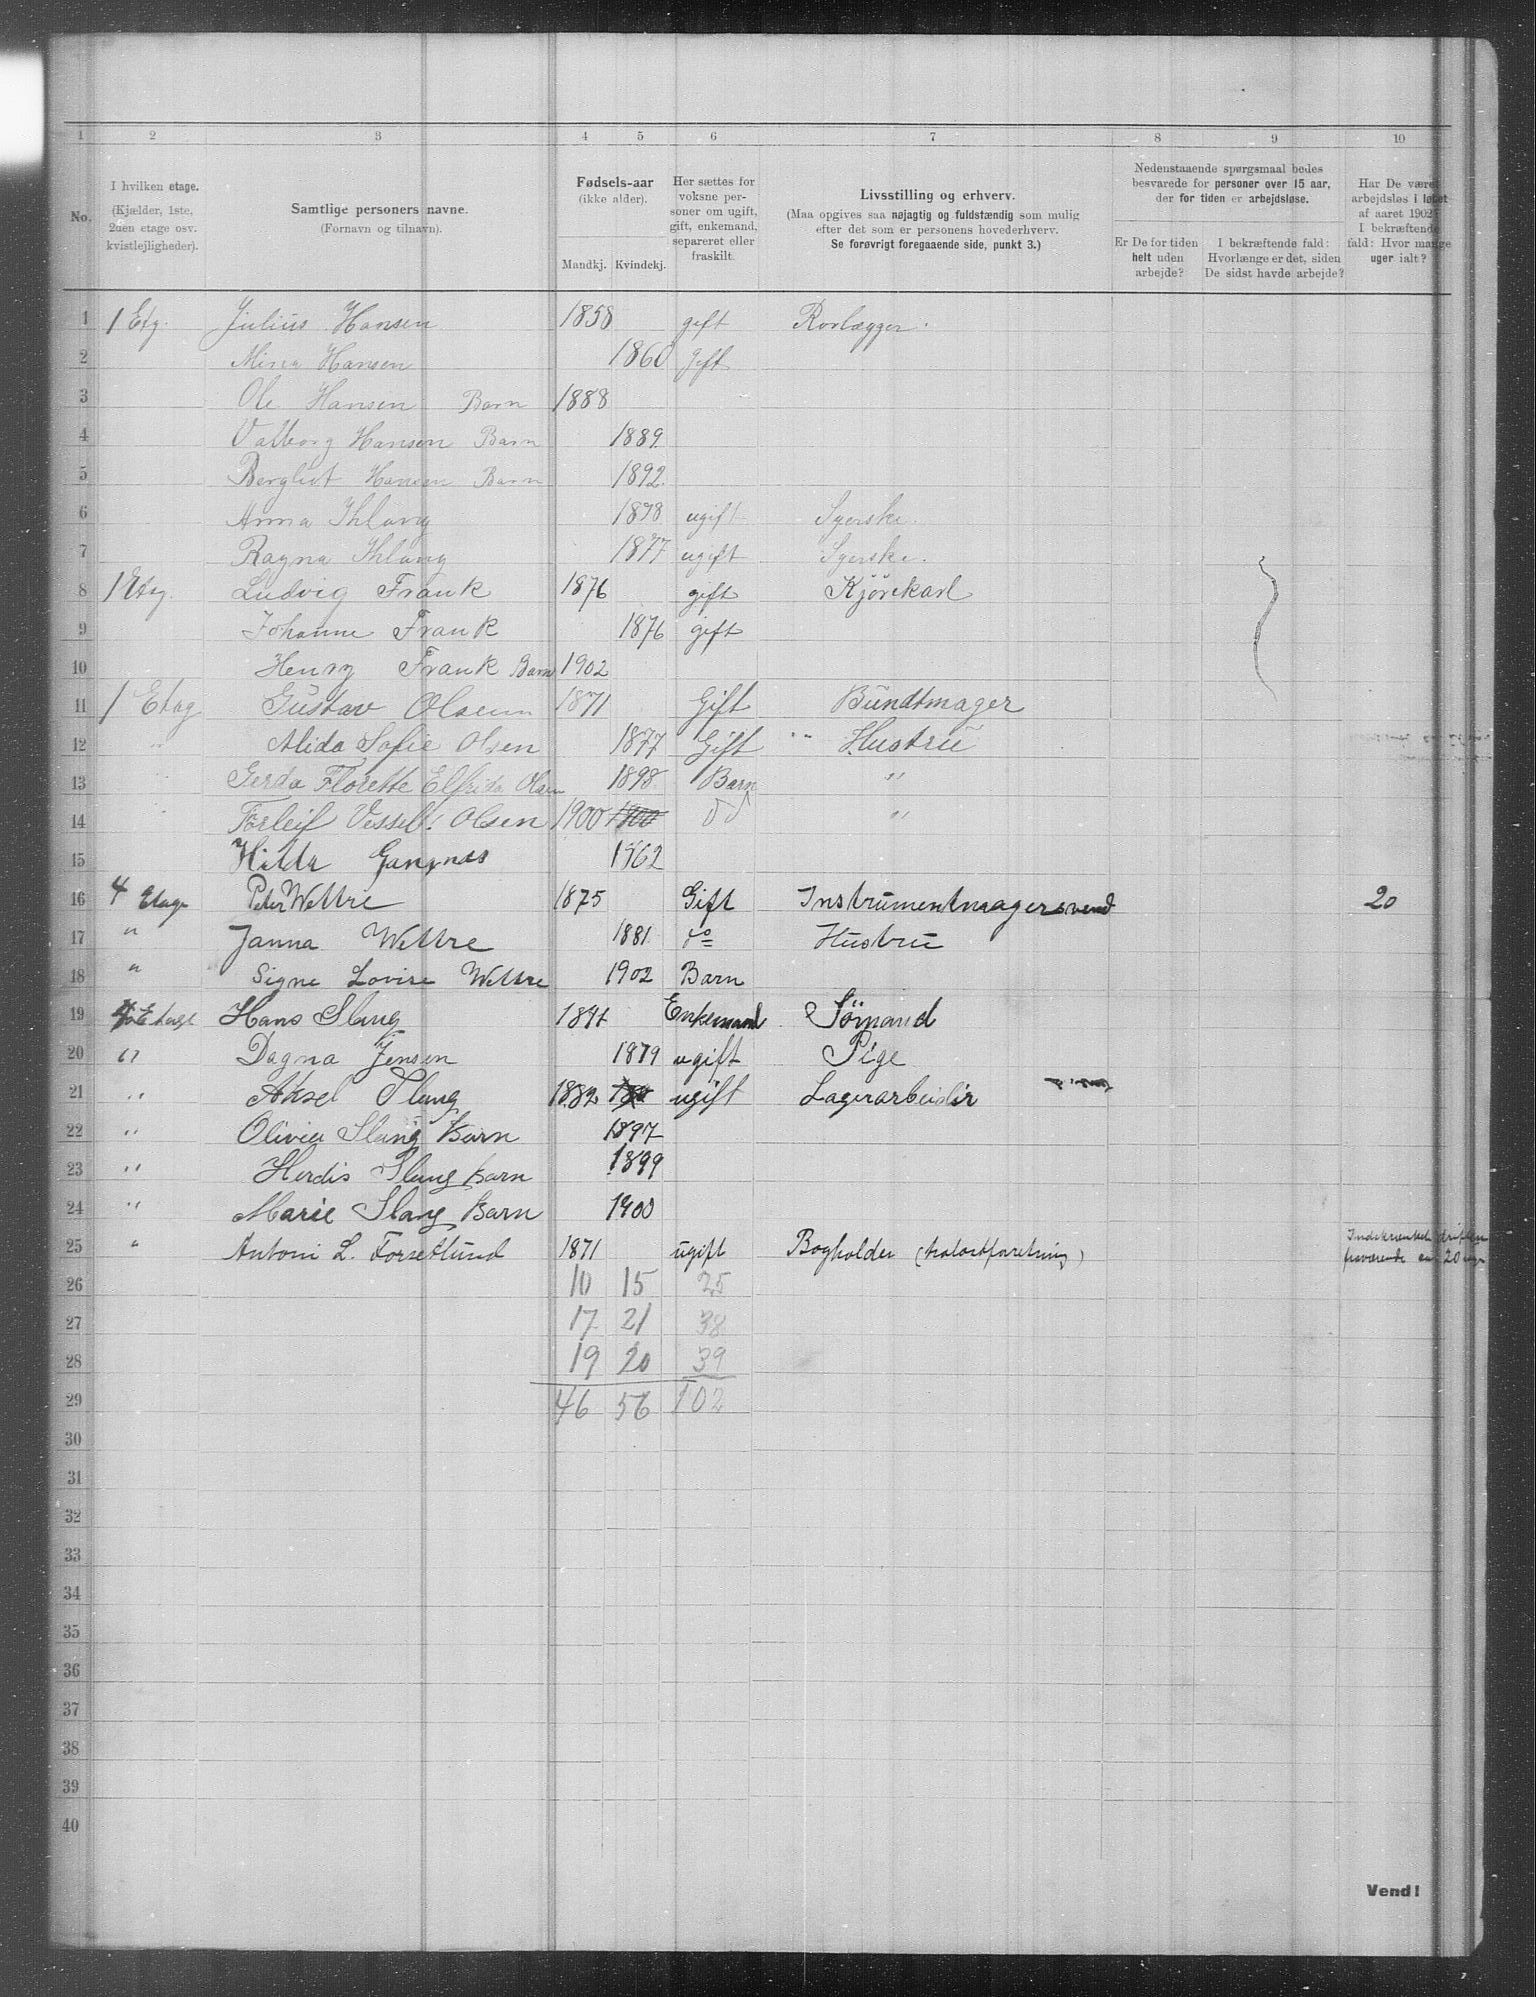 1 2 3 4 5 6 7 8 9 10
No.
I hvilken etage.
(Kjælder, 1ste,
2den etage osv.
kvistlejligheder).
Samtlige personers navne.
(Fornavn og tilnavn).
Fødsels-aar
(ikke alder).
Mandkj. Kvindekj.
Her sættes for
voksne per-
soner om ugift,
gift, enkemand,
separeret eller
fraskilt.
Livsstilling og erhverv.
(Maa opgives saa nøjagtig og fuldstændig som mulig
efter det som er personens hovederhverv.
Se forøvrigt foregaaende side, punkt 3.)
Nedenstaaende spørgsmaal bedes
besvarede for personer over 15 aar,
der for tiden er arbejdsløse.
Er De for tiden
helt uden
arbejde?
I bekræftende fald:
Hvorlænge er det, siden
De sidst havde arbejde?
Har De været
arbejdsløs i løbet
af aaret 1902?
I bekræftende
fald: Hvor mange
uger ialt?
1 1 Etg. Julius Hansen 1858 gift Rorlægger.
2 Mina Hansen 1860 gift
3 Ole Hansen Barn 1888
4 Valborg Hansen Barn 1889
5 Bergliot Hansen Barn 1892
6 Anna Ihlang ugift Syerske.
7 Ragna Ihlang 1877 ugift Syerske.
8 1 Etg. Ludvig Frank 1876 gift Kjörekarl
9 Johanne Frank 1876 gift
10 Henry Frank Barn 1902
11 1 Etag Gustav Olsen 1871 Gift Bundtmager
12 " Alida Sofie Olsen 1877 Gift " Hustru
13 Gerda Florette Elfrida Olsen 1898 Barn "
14 Torleif Vessel. Olsen 1900 1900 do "
15 Hilda Gangnæs 1862
16 4 Etage Peter Wettre 1875 Gift Instrumentmagersvend 20
17 " Janna Wettre 1881 do Hustru
18 " Signe Lovise Wettre 1902 Barn
19 4 Etage Hans Slang Enkemand Sömand
20 " Dagna Jensen 1879 ugift Pige
21 " Aksel Slang 1882 ugift Lagerarbeider
22 " Olivia Slang Barn 1897
23 " Herdis Slang Barn 1899
24 " Marie Slang Barn 1900
25 " Antoni L. Forsetlund 1871 ugift Bogholder
driften
20 uger
26 10 15 25
27 17 21 38
28 19 20 39
29 46 56 102
30
31
32
33
34
35
36
37
38
39
40
Vend!